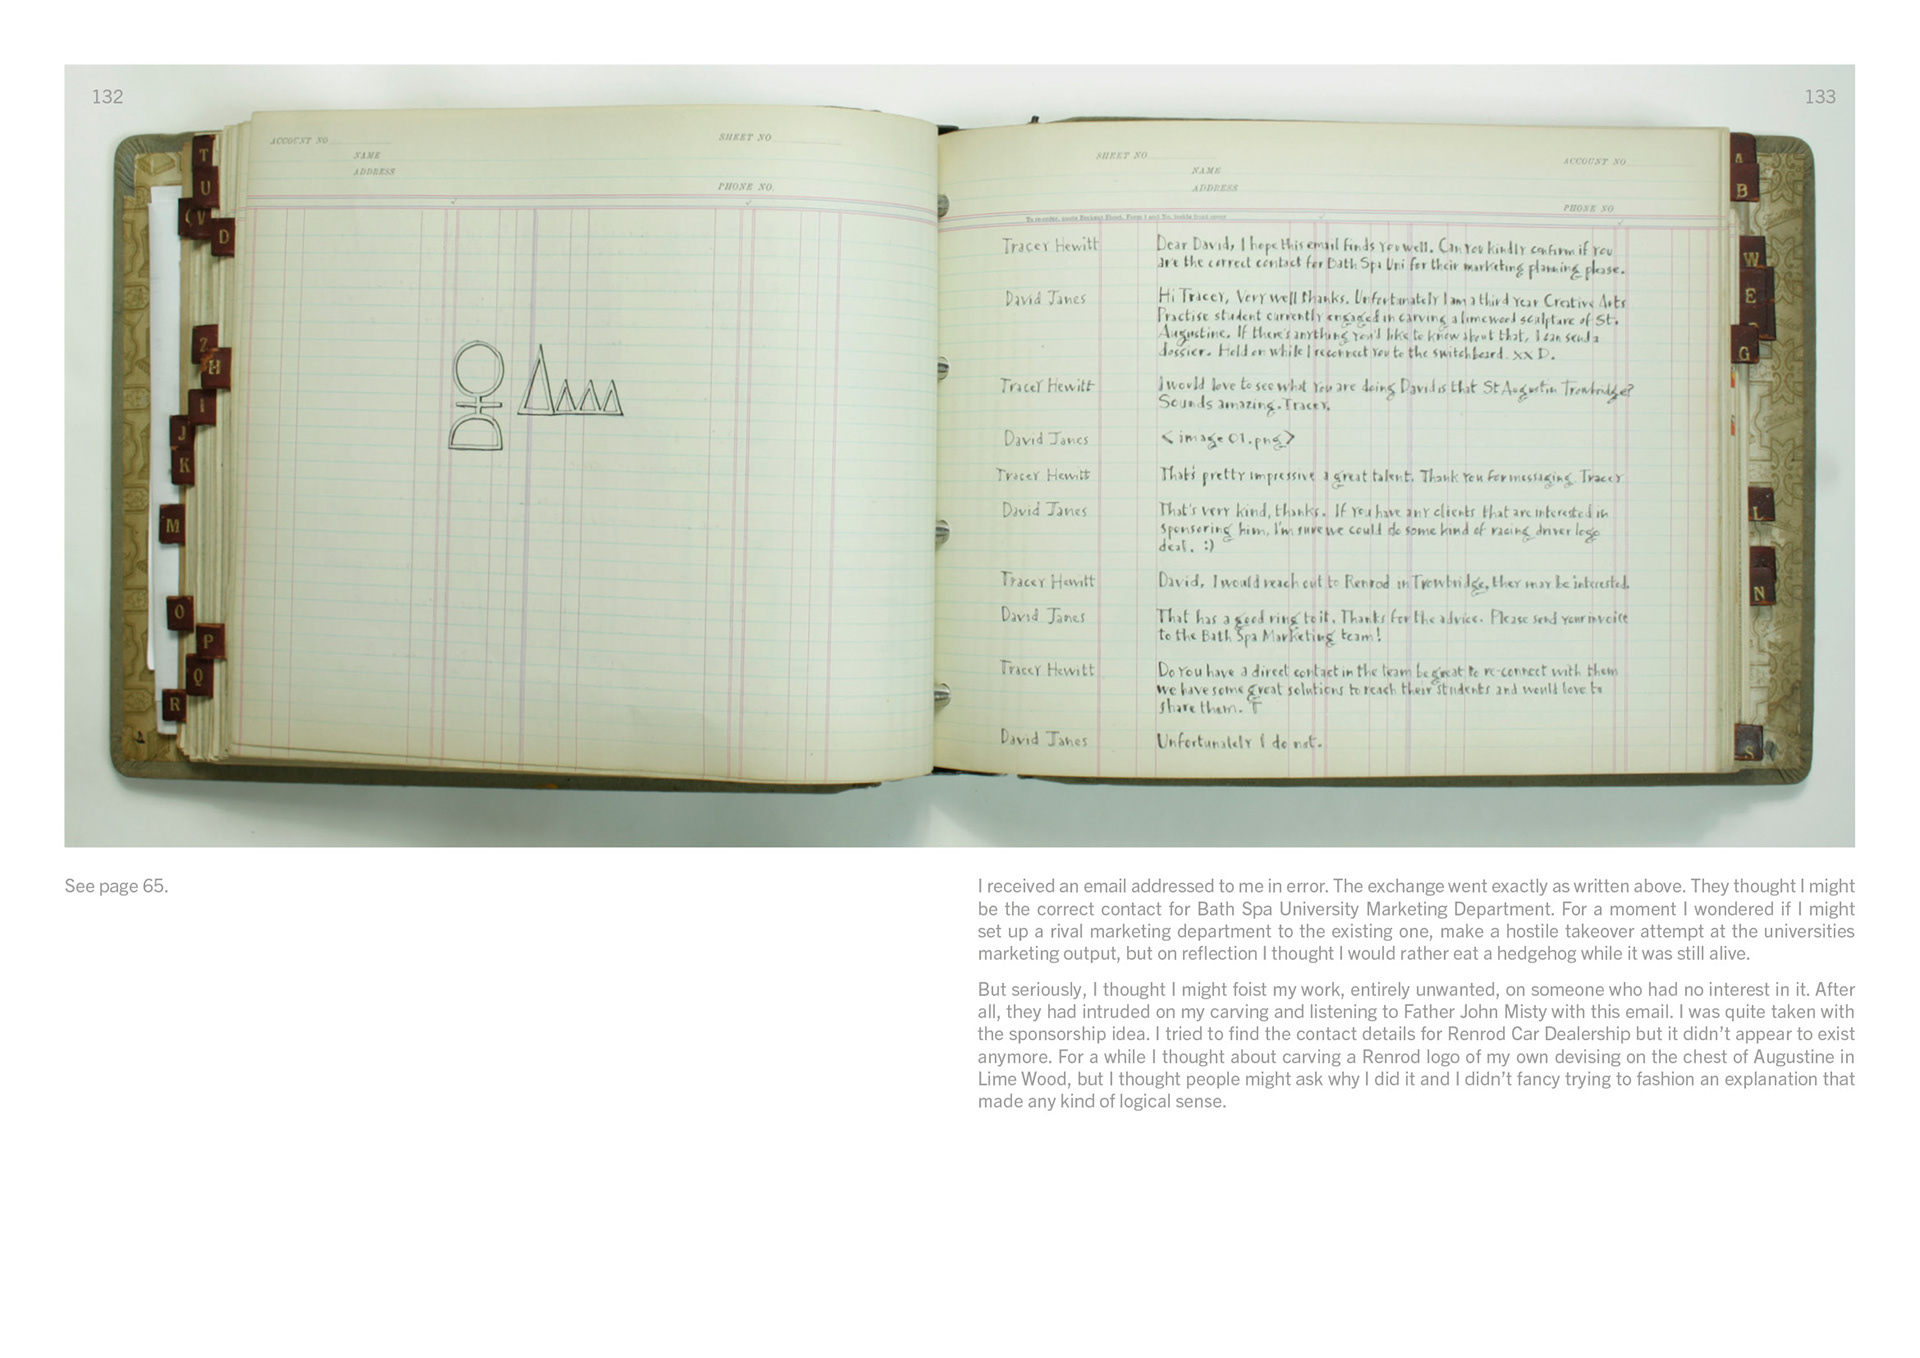 132
133
ACCOUNT NO
SHEET NO
NAME
ADDRESS
PHONE NO.
T
U
V
D
Z
H
I
J
K
M
O
P
Q
R
SHEET NO
ACCOUNT NO
NAME
ADDRESS
PHONE NO
A
B
W
E
G
L
N
S
Tracey Hewitt
Dear David, I hope this email finds you well. Can you kindly confirm if you
are the correct contact for Bath Spa Uni for their marketing planning please.
David Janes
Hi Tracey, Very well thanks. Unfortunately I am a third year Creative Arts
Practise student currently engaged in carving a limewood sculpture of St.
Augustine. If there's anything you'd like to know about that, I can send a
dossier. Hold on while I reconnect you to the switchboard. xx D.
Tracey Hewitt
I would love to see what you are doing David is that St Augustin Trowbridge?
Sounds amazing. Tracey.
David Janes
<image01.png>
Tracey Hewitt
That's pretty impressive a great talent. Thank you for messaging Tracey
David Janes
That's very kind, thanks. If you have any clients that are interested in
sponsoring him, I'm sure we could do some kind of racing driver logo
deal. :)
Tracey Hewitt
David, I would reach out to Renrod in Trowbridge, they may be interested.
David Janes
That has a good ring to it. Thanks for the advice. Please send your invoice
to the Bath Spa Marketing team!
Tracey Hewitt
Do you have a direct contact in the team be great to re-connect with them
we have some great solutions to reach their students and would love to
share them. T
David Janes
Unfortunately I do not.
See page 65.
I received an email addressed to me in error. The exchange went exactly as written above. They thought I might
be the correct contact for Bath Spa University Marketing Department. For a moment I wondered if I might
set up a rival marketing department to the existing one, make a hostile takeover attempt at the universities
marketing output, but on reflection I thought I would rather eat a hedgehog while it was still alive.
But seriously, I thought I might foist my work, entirely unwanted, on someone who had no interest in it. After
all, they had intruded on my carving and listening to Father John Misty with this email. I was quite taken with
the sponsorship idea. I tried to find the contact details for Renrod Car Dealership but it didn't appear to exist
anymore. For a while I thought about carving a Renrod logo of my own devising on the chest of Augustine in
Lime Wood, but I thought people might ask why I did it and I didn't fancy trying to fashion an explanation that
made any kind of logical sense.